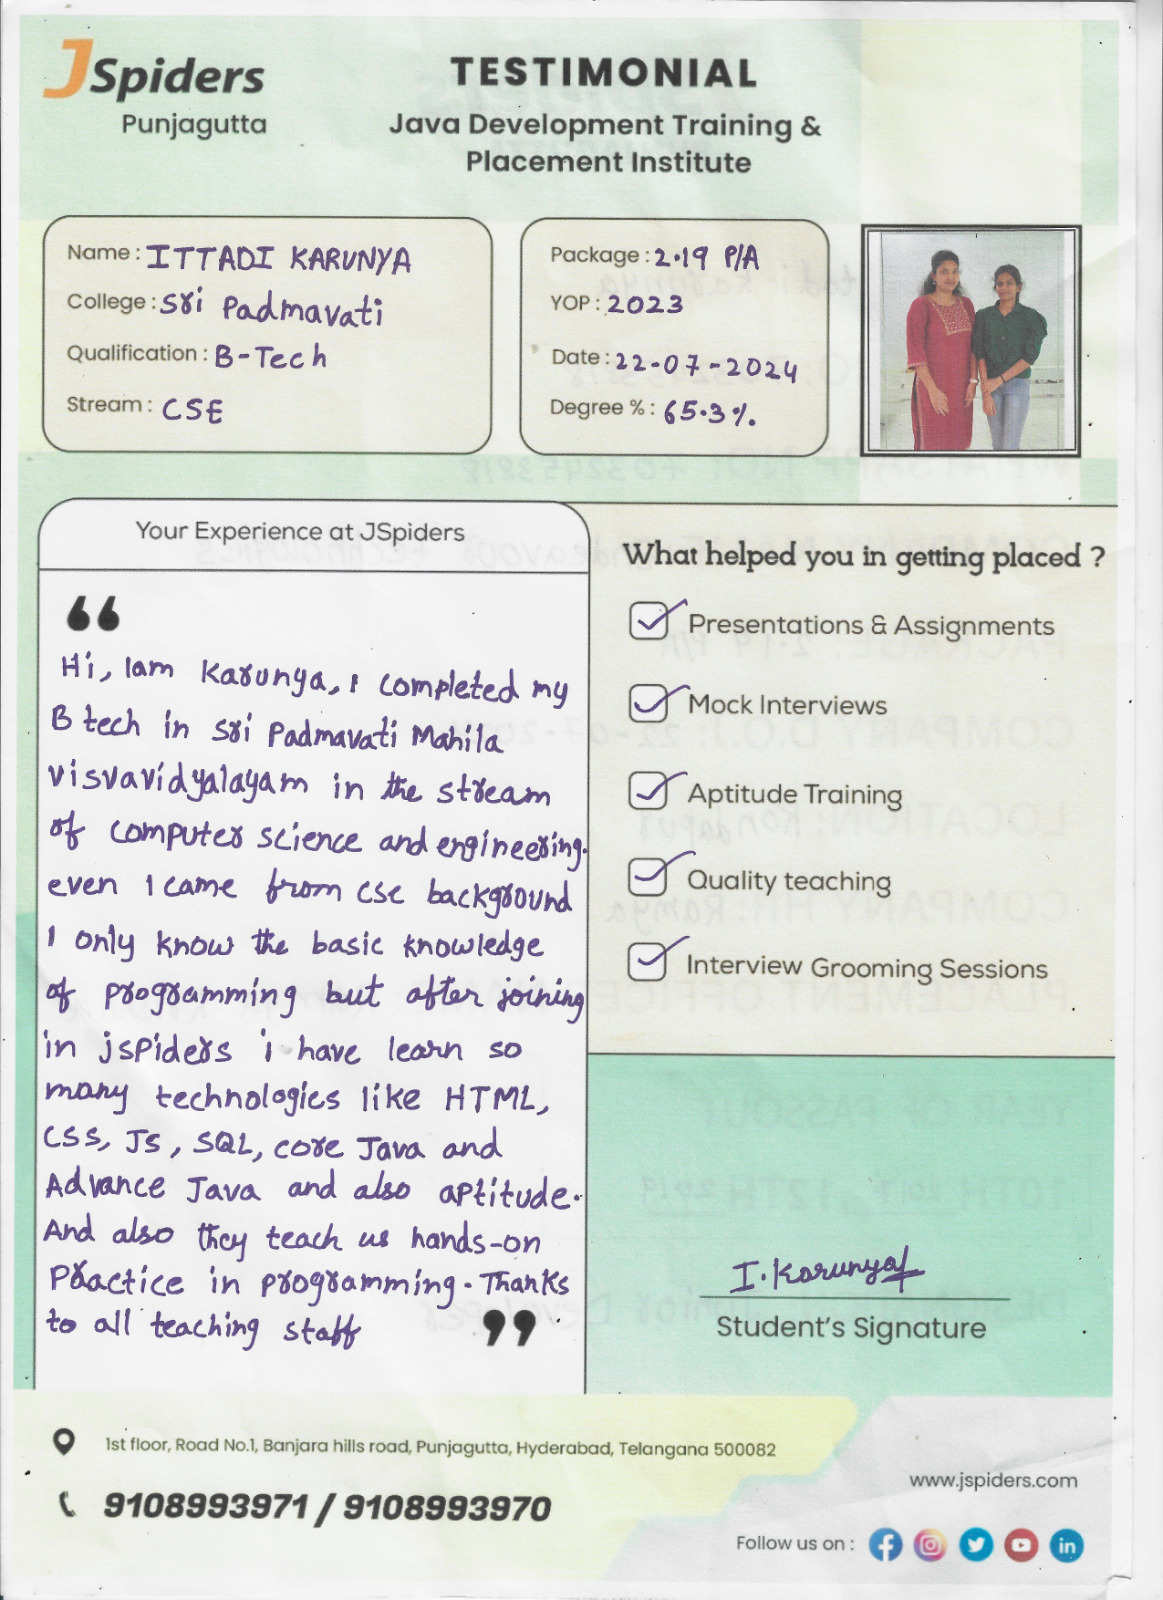 JSpiders
Punjagutta
TESTIMONIAL
Java Development Training &
Placement Institute
Name : ITTADI KARUNYA
College : Sri Padmavati
Qualification : B-Tech
Stream : CSE
Package : 2.19 P/A
YOP : 2023
Date : 22-07-2024
Degree % : 65.3%.
Your Experience at JSpiders
“
Hi, Iam Karunya, I completed my
B tech in Sri Padmavati Mahila
visvavidyalayam in the stream
of computer science and engineering.
even I came from cse background
I only know the basic knowledge
of programming but after joining
in jspiders i have learn so
many technologies like HTML,
CSS, JS, SQL, core Java and
Advance Java and also aptitude.
And also they teach us hands-on
Practice in programming. Thanks
to all teaching staff
”
What helped you in getting placed ?
Presentations & Assignments
Mock Interviews
Aptitude Training
Quality teaching
Interview Grooming Sessions
I. Karunya
Student's Signature
1st floor, Road No.1, Banjara hills road, Punjagutta, Hyderabad, Telangana 500082
9108993971 / 9108993970
www.jspiders.com
Follow us on :